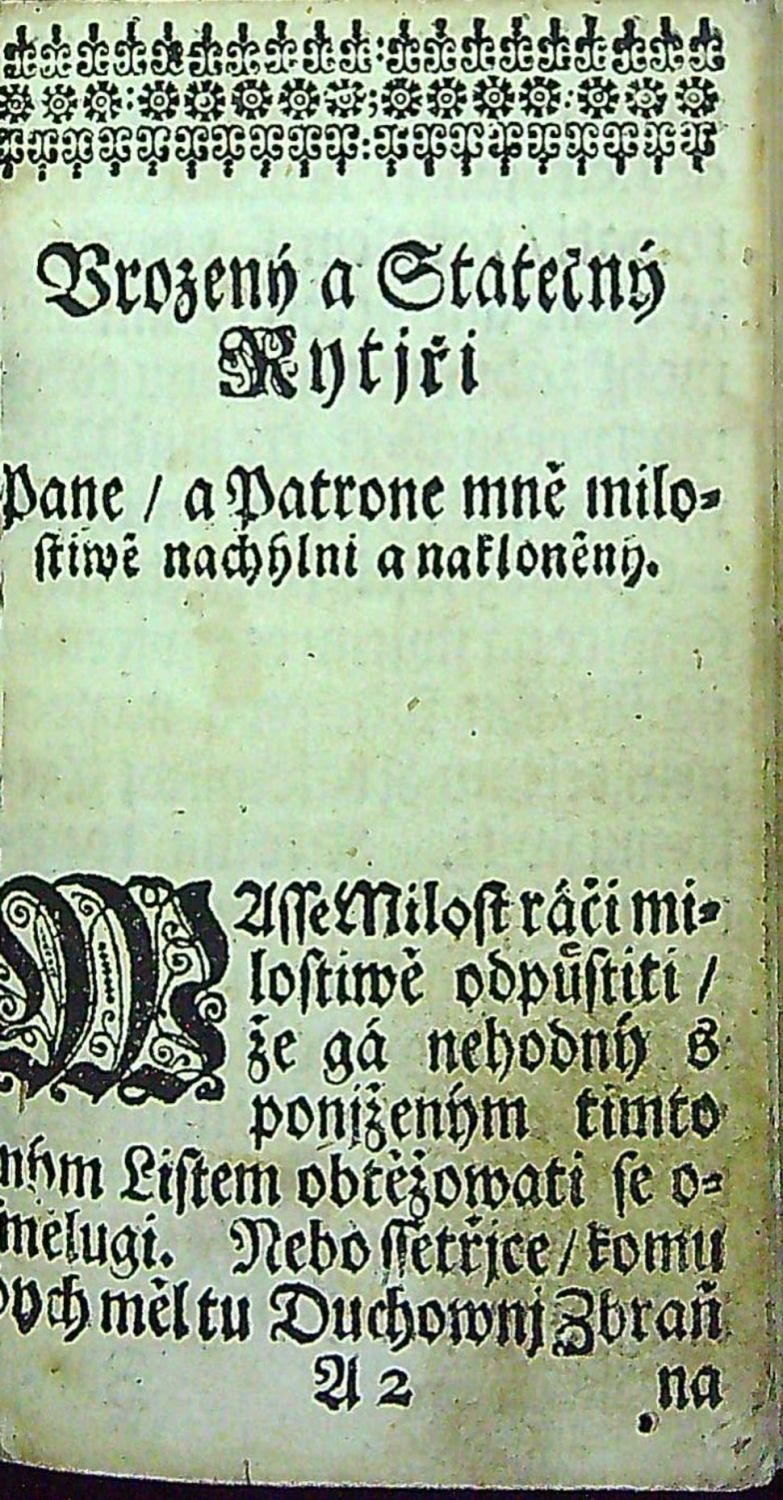 Vrozený a Statečný
Rytjři
Pane / a Patrone mně milo-
stiwě nachýlni a nakloněný.
WAsse Milost ráči mi-
lostiwě odpůstiti /
že gá nehodný s
ponjženým timto
Listem obtěžowati se o-
mělugi. Nebo ssetřjce / komu
bych měl tu Duchownj Zbraň
A 2 na